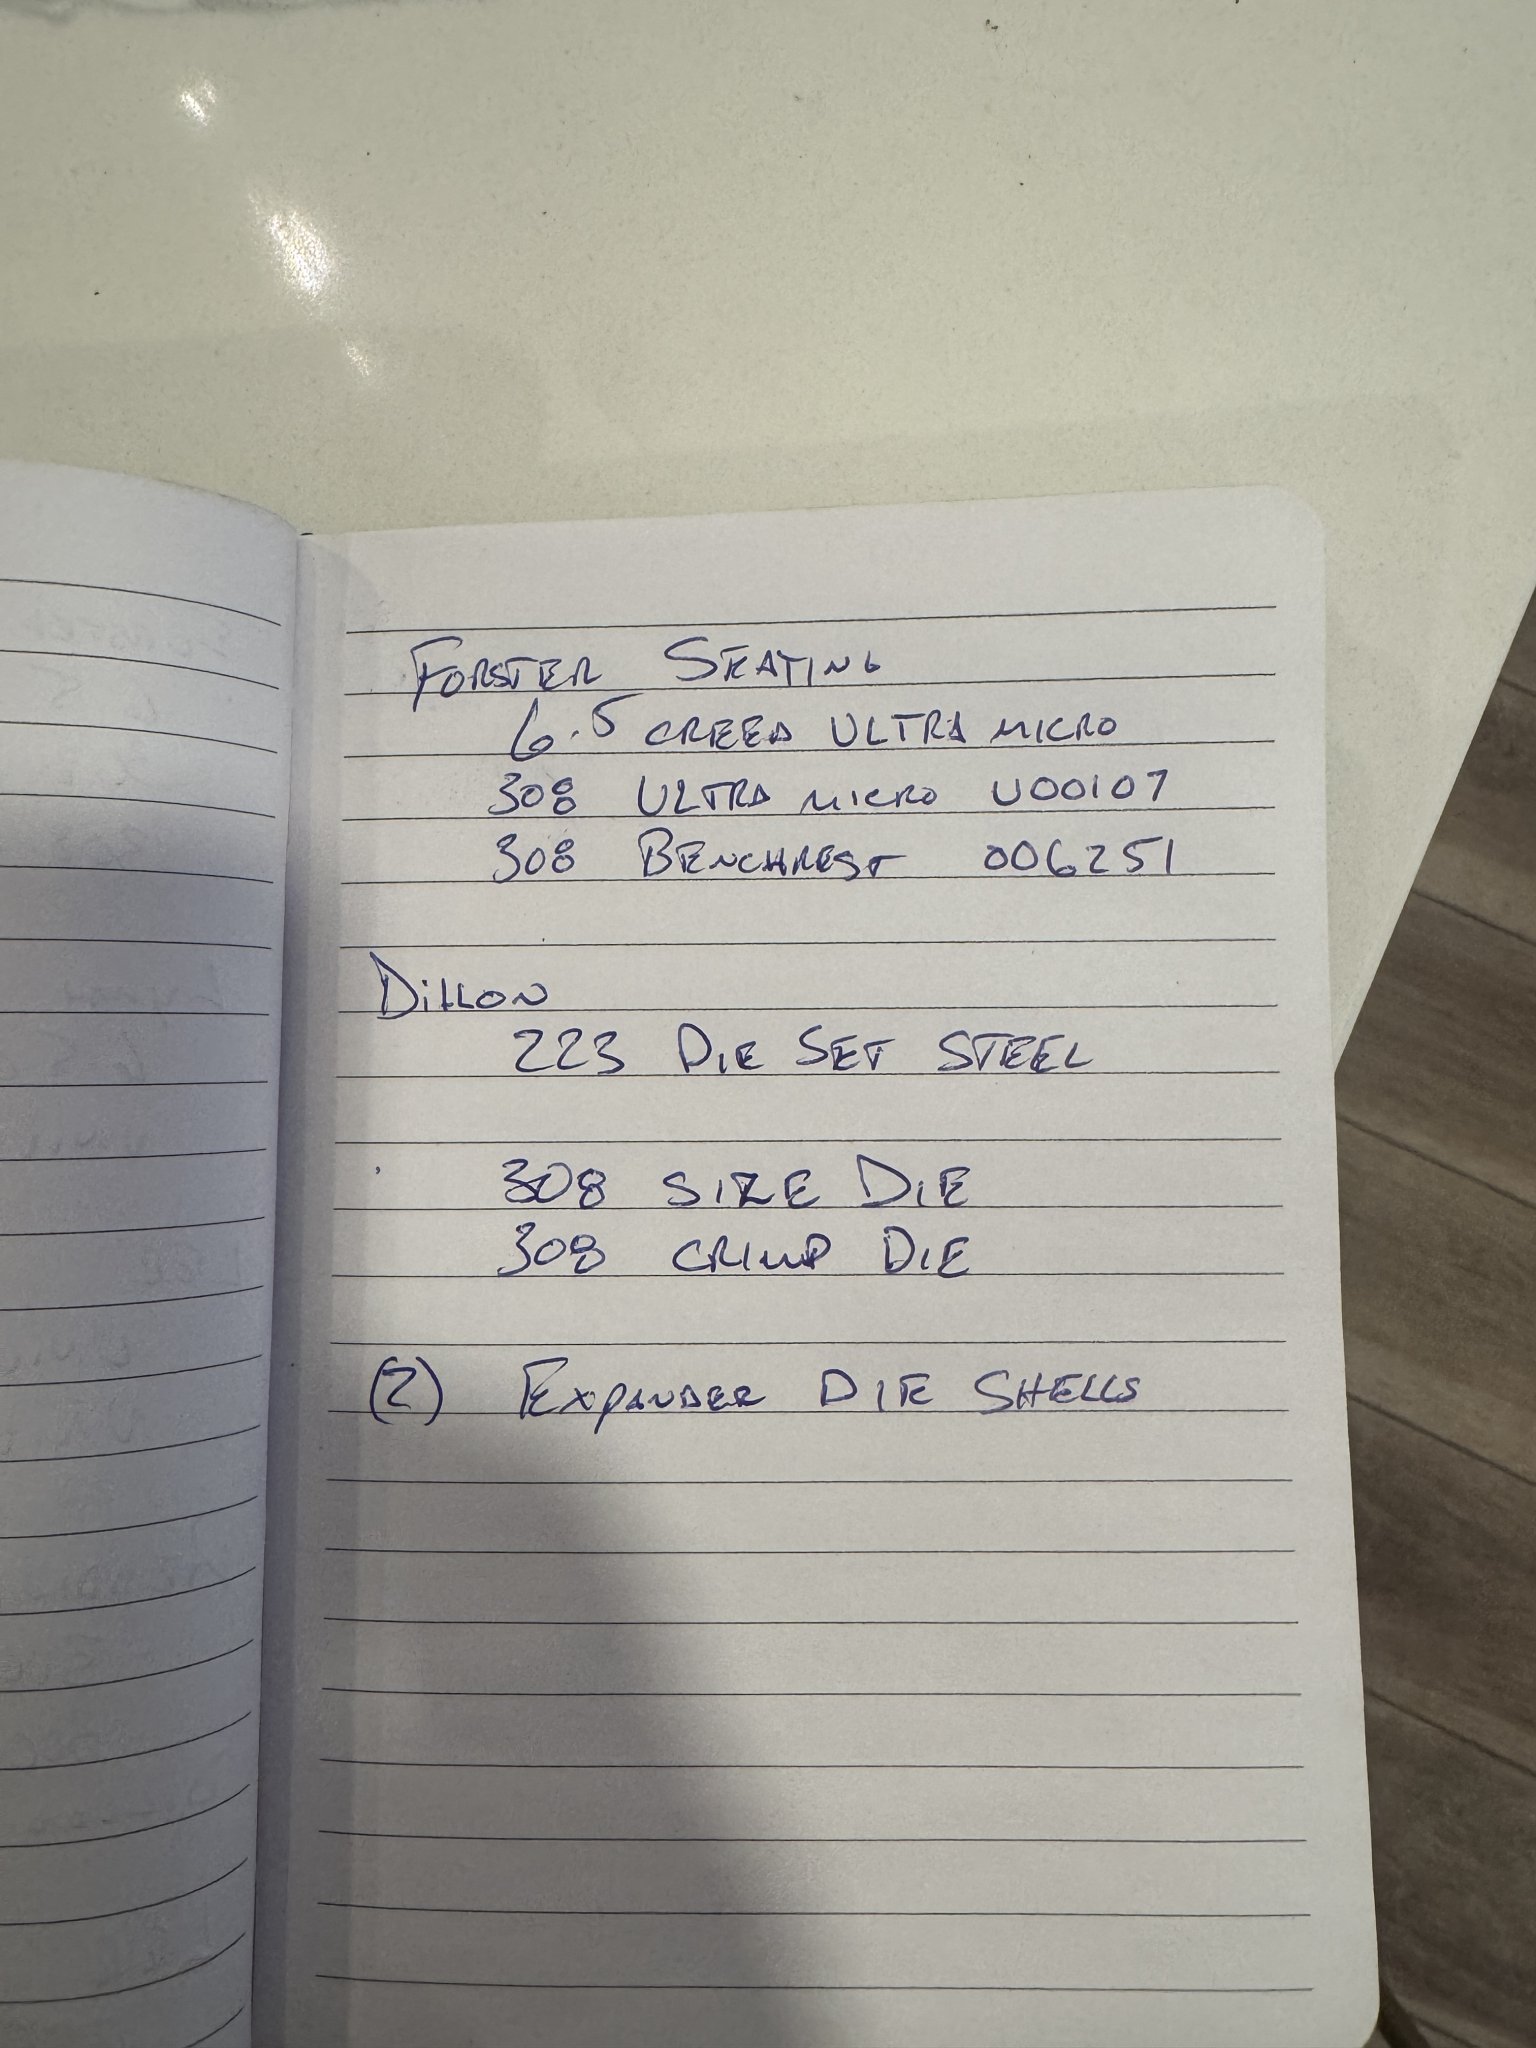 FORSTER SEATING
6.5 CREED ULTRA MICRO
308 ULTRA MICRO U00107
308 BENCHREST 006251
DILLON
223 DIE SET STEEL
308 SIZE DIE
308 CRIMP DIE
(2) EXPANDER DIE SHELLS